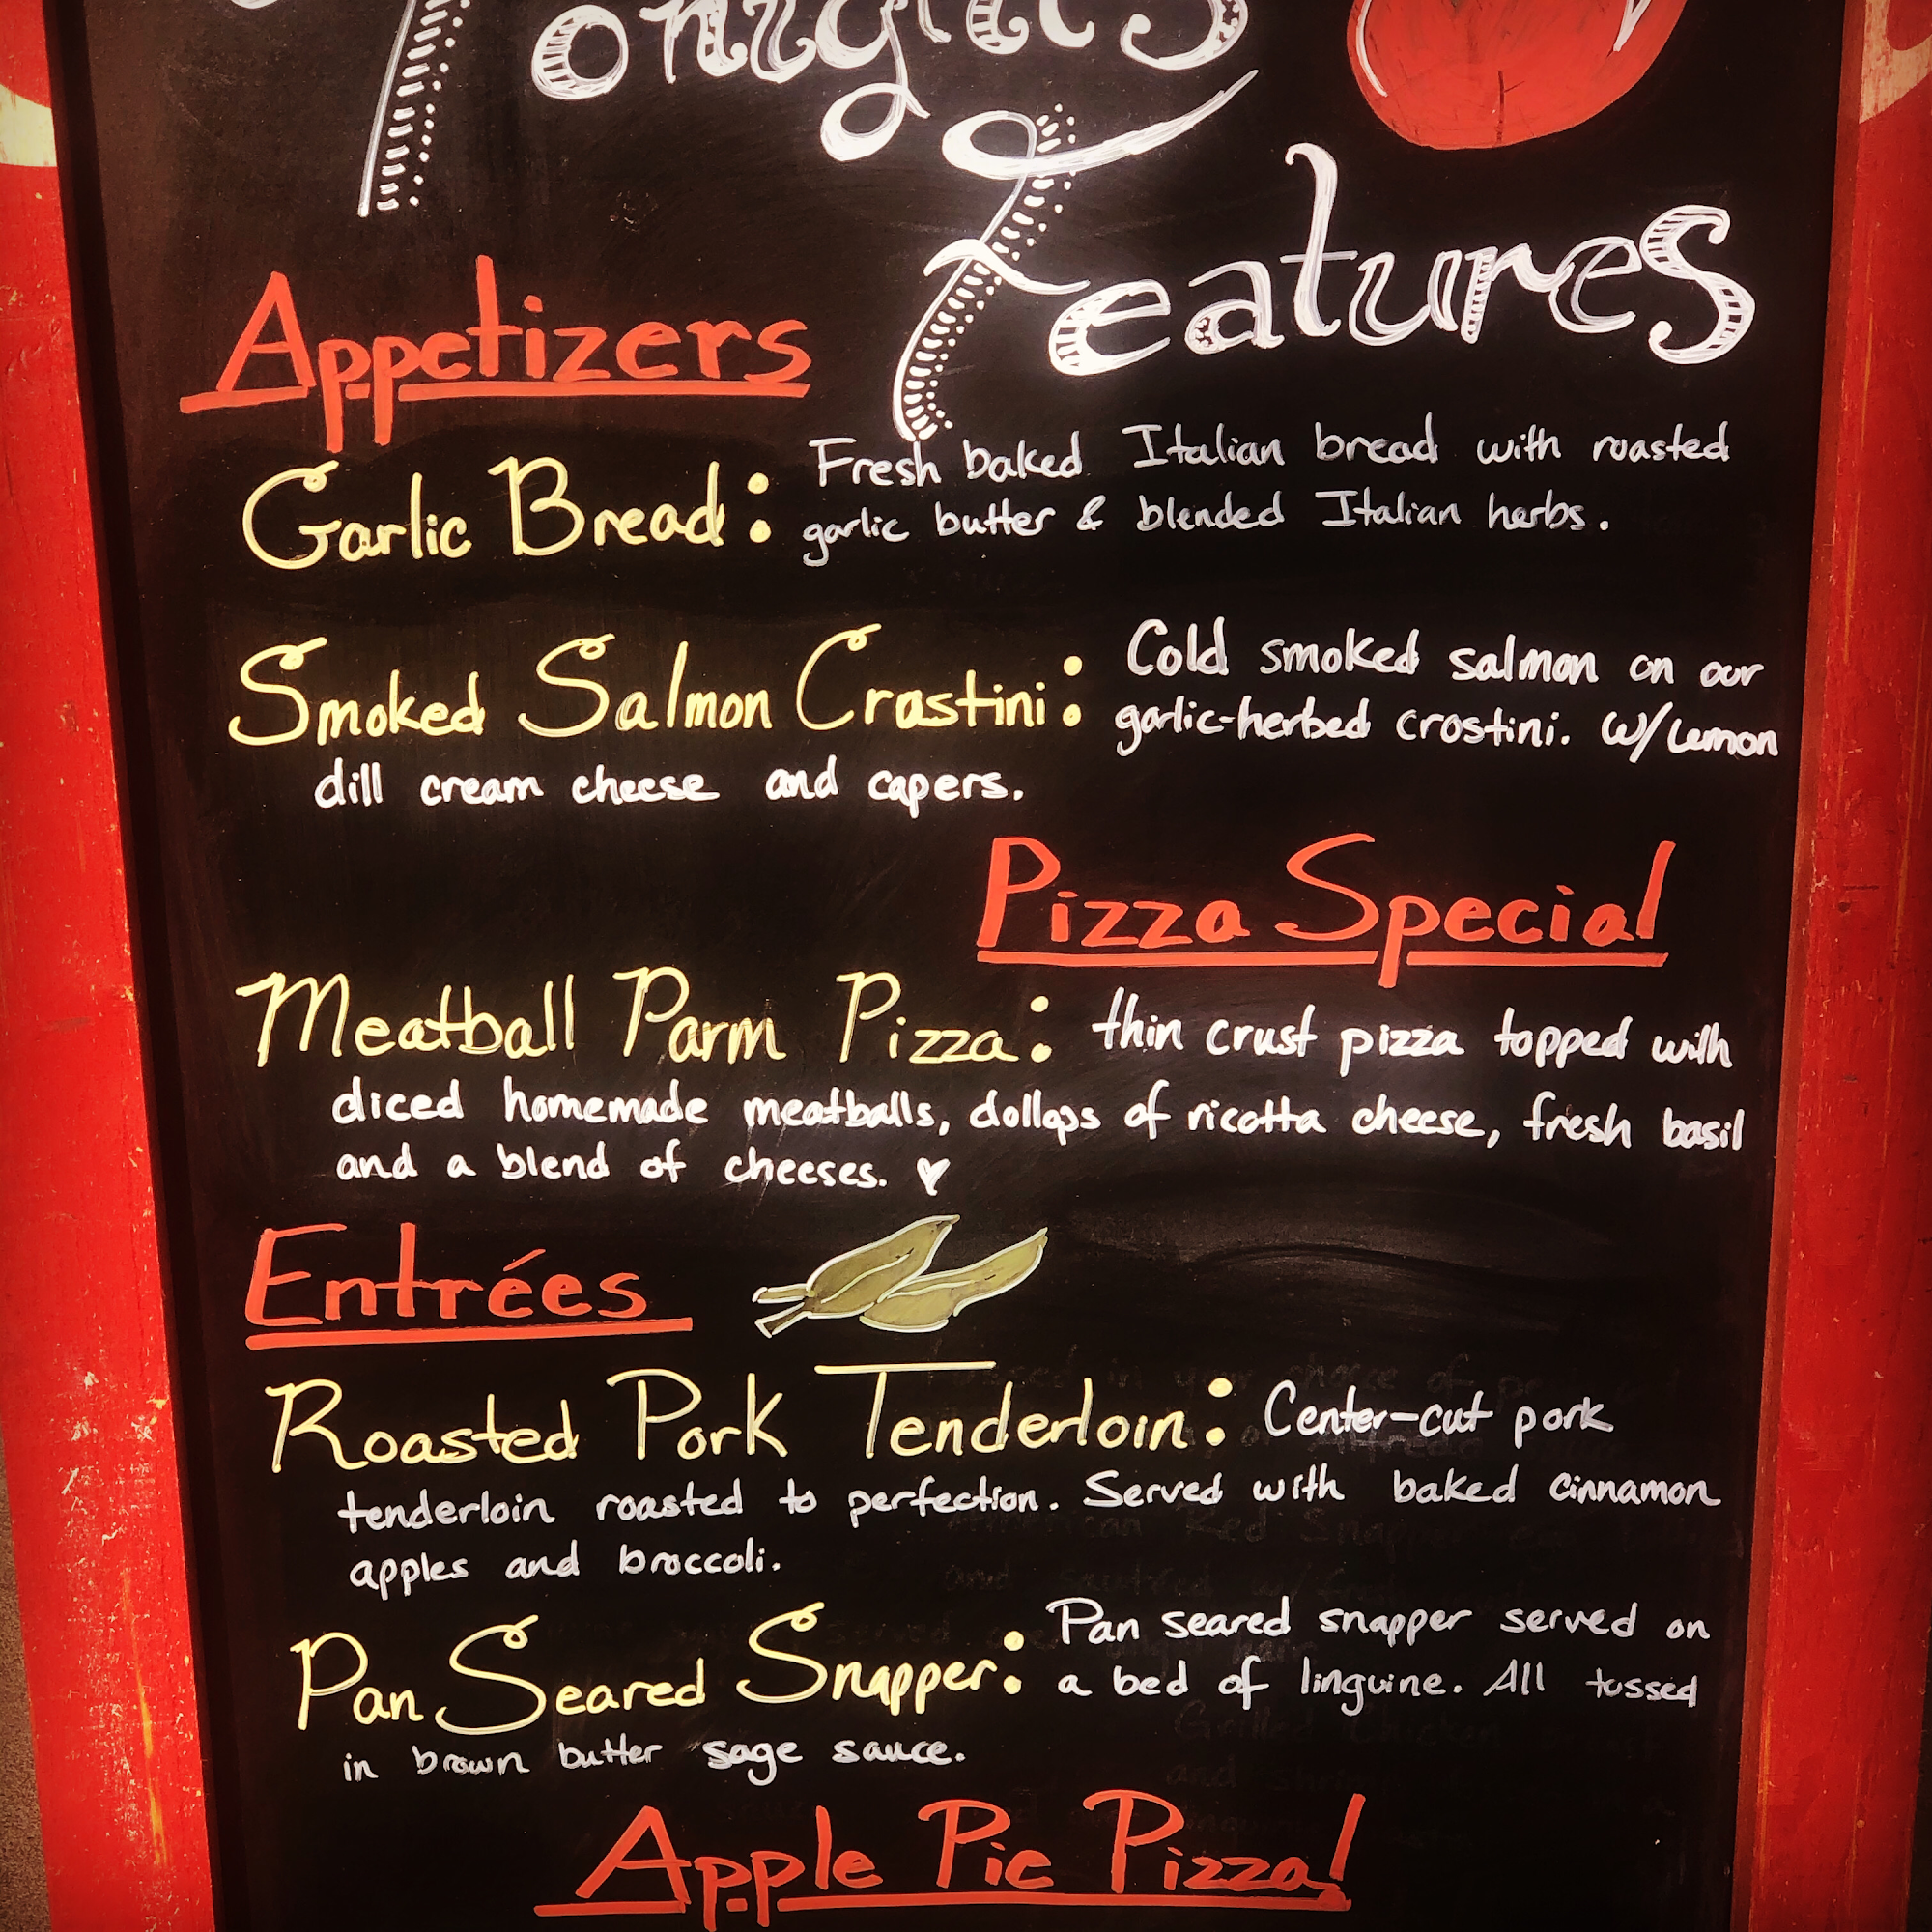 Tonights
Features
Appetizers
Garlic Bread: Fresh baked Italian bread with roasted
garlic butter & blended Italian herbs.
Smoked Salmon Crostini: Cold smoked salmon on our
garlic-herbed crostini. W/Lemon
dill cream cheese and capers.
Pizza Special
Meatball Parm Pizza: thin crust pizza topped with
diced homemade meatballs, dollops of ricotta cheese, fresh basil
and a blend of cheeses.
Entrées
Roasted Pork Tenderloin: Center-cut pork
tenderloin roasted to perfection. Served with baked cinnamon
apples and broccoli.
Pan Seared Snapper: Pan seared snapper served on
a bed of linguine. All tossed
in brown butter sage sauce.
Apple Pie Pizza!